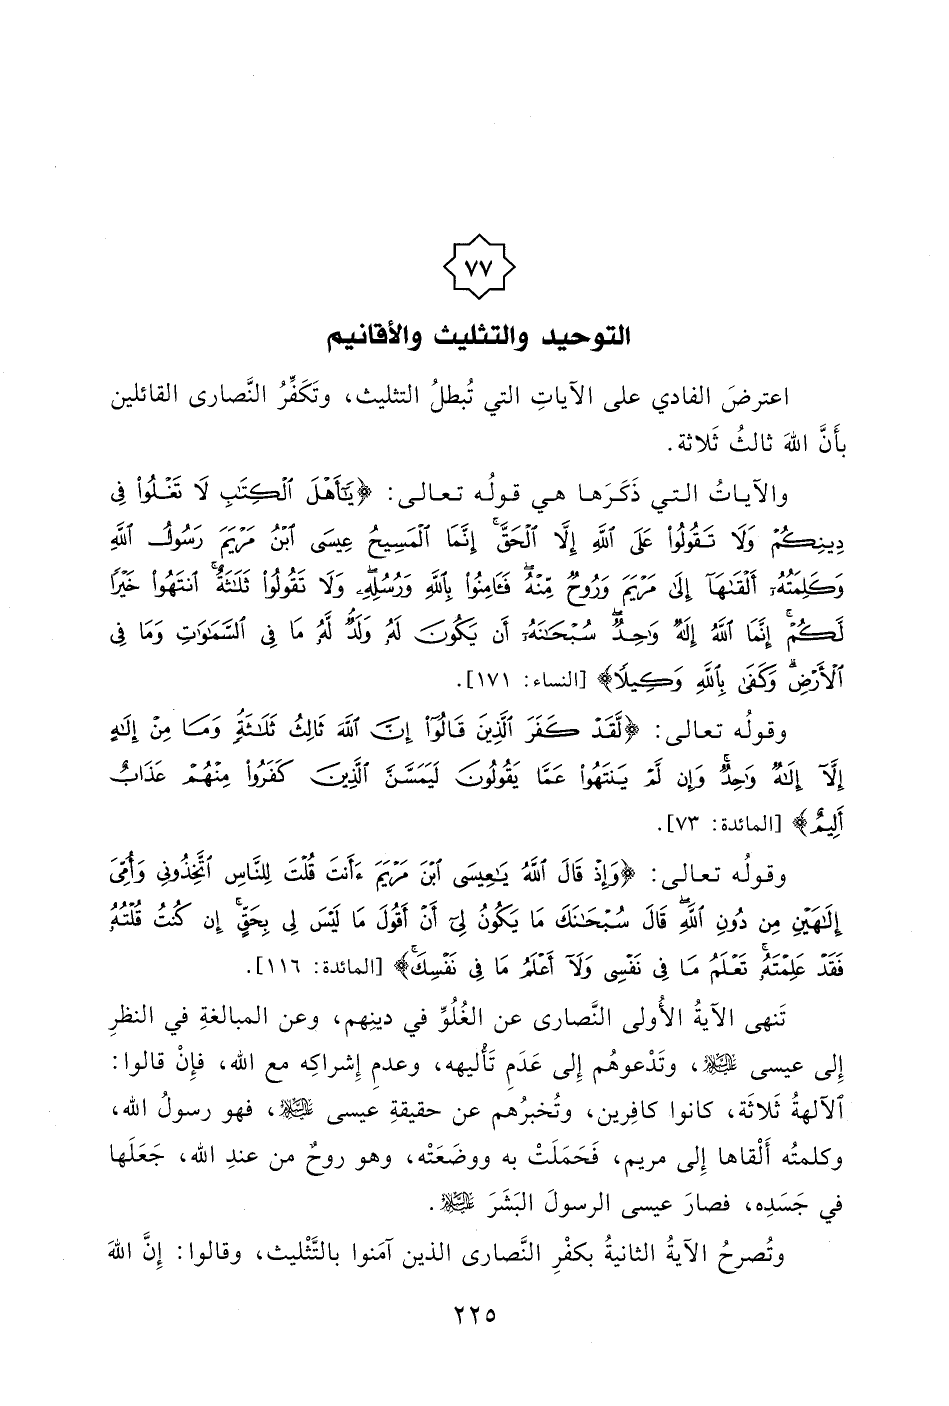 ٧٧
التوحيد والتثليث والأقانيم
اعترضَ الفادي على الآياتِ التي تُبطلُ التثليث، وتَكَفِّرُ النَّصارى القائلين
بأَنَّ اللهَ ثالثُ ثَلاثة.
والآياتُ التي ذَكَرَها هي قولُه تعالى: ﴿يَٰٓأَهْلَ ٱلْكِتَٰبِ لَا تَغْلُوا۟ فِى
دِينِكُمْ وَلَا تَقُولُوا۟ عَلَى ٱللَّهِ إِلَّا ٱلْحَقَّ ۚ إِنَّمَا ٱلْمَسِيحُ عِيسَى ٱبْنُ مَرْيَمَ رَسُولُ ٱللَّهِ
وَكَلِمَتُهُۥٓ أَلْقَىٰهَآ إِلَىٰ مَرْيَمَ وَرُوحٌ مِّنْهُ ۖ فَـَٔامِنُوا۟ بِٱللَّهِ وَرُسُلِهِۦ ۖ وَلَا تَقُولُوا۟ ثَلَٰثَةٌ ۚ ٱنتَهُوا۟ خَيْرًا
لَّكُمْ ۚ إِنَّمَا ٱللَّهُ إِلَٰهٌ وَٰحِدٌ ۖ سُبْحَٰنَهُۥٓ أَن يَكُونَ لَهُۥ وَلَدٌ ۘ لَّهُۥ مَا فِى ٱلسَّمَٰوَٰتِ وَمَا فِى
ٱلْأَرْضِ ۗ وَكَفَىٰ بِٱللَّهِ وَكِيلًا﴾ [النساء: ١٧١].
وقولُه تعالى: ﴿لَّقَدْ كَفَرَ ٱلَّذِينَ قَالُوٓا۟ إِنَّ ٱللَّهَ ثَالِثُ ثَلَٰثَةٍ ۘ وَمَا مِنْ إِلَٰهٍ
إِلَّآ إِلَٰهٌ وَٰحِدٌ ۚ وَإِن لَّمْ يَنتَهُوا۟ عَمَّا يَقُولُونَ لَيَمَسَّنَّ ٱلَّذِينَ كَفَرُوا۟ مِنْهُمْ عَذَابٌ
أَلِيمٌ﴾ [المائدة: ٧٣].
وقولُه تعالى: ﴿وَإِذْ قَالَ ٱللَّهُ يَٰعِيسَى ٱبْنَ مَرْيَمَ ءَأَنتَ قُلْتَ لِلنَّاسِ ٱتَّخِذُونِى وَأُمِّىَ
إِلَٰهَيْنِ مِن دُونِ ٱللَّهِ ۖ قَالَ سُبْحَٰنَكَ مَا يَكُونُ لِىٓ أَنْ أَقُولَ مَا لَيْسَ لِى بِحَقٍّ ۚ إِن كُنتُ قُلْتُهُۥ
فَقَدْ عَلِمْتَهُۥ ۚ تَعْلَمُ مَا فِى نَفْسِى وَلَآ أَعْلَمُ مَا فِى نَفْسِكَ ۚ﴾ [المائدة: ١١٦].
تَنهى الآيةُ الأُولى النَّصارى عن الغُلُوِّ في دينِهم، وعن المبالغةِ في النظرِ
إِلى عيسى عليه السلام، وتَدْعوهُم إِلى عَدَمِ تَأْليهه، وعدمِ إِشراكِه مع الله، فإِنْ قالوا:
الآلهةُ ثَلاثَة، كانوا كافِرين، وتُخبرُهم عن حقيقةِ عيسى عليه السلام، فهو رسولُ الله،
وكلمتُه أَلْقاها إِلى مريم، فَحَمَلَتْ به ووضَعَتْه، وهو روحٌ من عندِ الله، جَعَلَها
في جَسَدِه، فصارَ عيسى الرسولَ البَشَرَ عليه السلام.
وتُصرحُ الآيةُ الثانيةُ بكفْرِ النَّصارى الذين آمَنوا بالتَّثْليث، وقالوا: إِنَّ اللهَ
٢٢٥